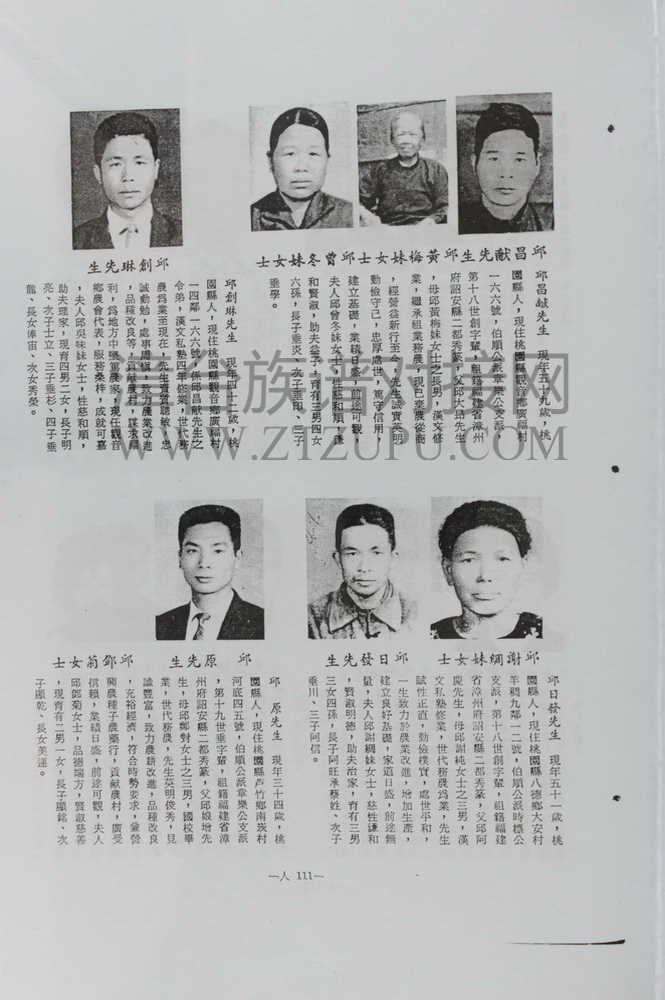 邱昌猷先生 邱黃梅妹女士 邱曾冬妹女士
邱昌猷先生 現年五十九歲，桃
園縣人，現住桃園縣觀音鄉廣福村
一六六號，伯順公派章樂公支派，
第十八世創字輩，祖籍福建省漳州
府詔安縣二都秀篆，父邱大昻先生
，母邱黃梅妹女士之長男，漢文修
業，繼承祖業務農，現已棄農從商
，經營益新行至今，先生誠實英明
勤儉守己，忠厚處世，篤守信用，
建立基礎，業績日盛，前途可觀，
夫人邱曾冬妹女士，性慈和順，謙
和賢淑，助夫益子，育有三男四女
六孫，長子垂炎、次子垂田、三子
垂學。
邱創琳先生
邱創琳先生 現年四十二歲，桃
園縣人，現住桃園縣觀音鄉廣福村
一四鄰一六六號，係邱昌猷先生之
令弟，漢文私塾四年修業，世代務
農爲業至現在，先生資質聰敏，忠
誠勤勉，處事周愼，致力農業改進
，品種改良等，貢獻農村，謀求福
利，爲地方中堅篤農家，現任觀音
鄉農會代表，服務桑梓，成就可嘉
，夫人邱吳味妹女士，性慈和順，
助夫理家，現育四男二女，長子明
亮、次子士立、三子垂杉、四子垂
龍、長女倴宙、次女秀榮。
邱謝綢妹女士 邱日發先生
邱日發先生 現年五十一歲，桃
園縣人，現住桃園縣八德鄉大安村
羊稠九鄰一二號，伯順公派時標公
支派，第十八世創字輩，祖籍福建
省漳州府詔安縣二都秀篆，父邱阿
慶先生，母邱謝純女士之三男，漢
文私塾修業，世代務農爲業，先生
賦性正直，勤儉樸實，處世平和，
一生致力於農業改進，增加生產，
建立良好基礎，家道日盛，前途無
量，夫人邱謝綢妹女士，慈性謙和
，賢淑明德，助夫治家，育有三男
三女四孫，長子阿旺承蔡姓、次子
垂川、三子阿信。
邱 原先生 邱鄧菊女士
邱 原先生 現年三十四歲，桃
園縣人，現住桃園縣芦竹鄉南崁村
河底四五號，伯順公派章樂公支派
，第十九世垂字輩，祖籍福建省漳
州府詔安縣二都秀篆，父邱娘增先
生，母邱鄭對女士之三男，國校畢
業，世代務農，先生英明俊秀，見
識豐富，致力農耕改進，品種改良
，充裕經濟，符合時勢要求，兼營
興農種子農藥行，貢獻農村，廣受
信賴，業績日盛，前途可觀，夫人
邱鄧菊女士，品德端方，賢淑慈善
，現育有二男一女，長子顯銘、次
子顯乾、長女美蓮。
—人 111—
WWW.ZTZUPU.COM